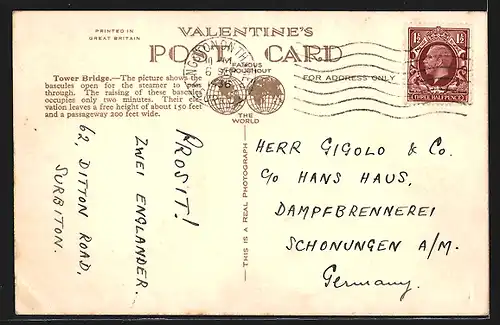 PRINTED IN
GREAT BRITAIN
VALENTINE'S
POST CARD
FAMOUS
THROUGHOUT
THE
WORLD
FOR ADDRESS ONLY
1½ 1½
THREE HALFPENCE
AM
6 SP
36
Tower Bridge.—The picture shows the
bascules open for the steamer to pass
through. The raising of these bascules
occupies only two minutes. Their ele-
vation leaves a free height of about 150 feet
and a passageway 200 feet wide.
PROSIT!
ZWEI ENGLANDER.
62, DITTON ROAD,
SURBITON.
THIS IS A REAL PHOTOGRAPH
HERR GIGOLO & Co.
C/o HANS HAUS,
DAMPFBRENNEREI
SCHONUNGEN A/M.
Germany.